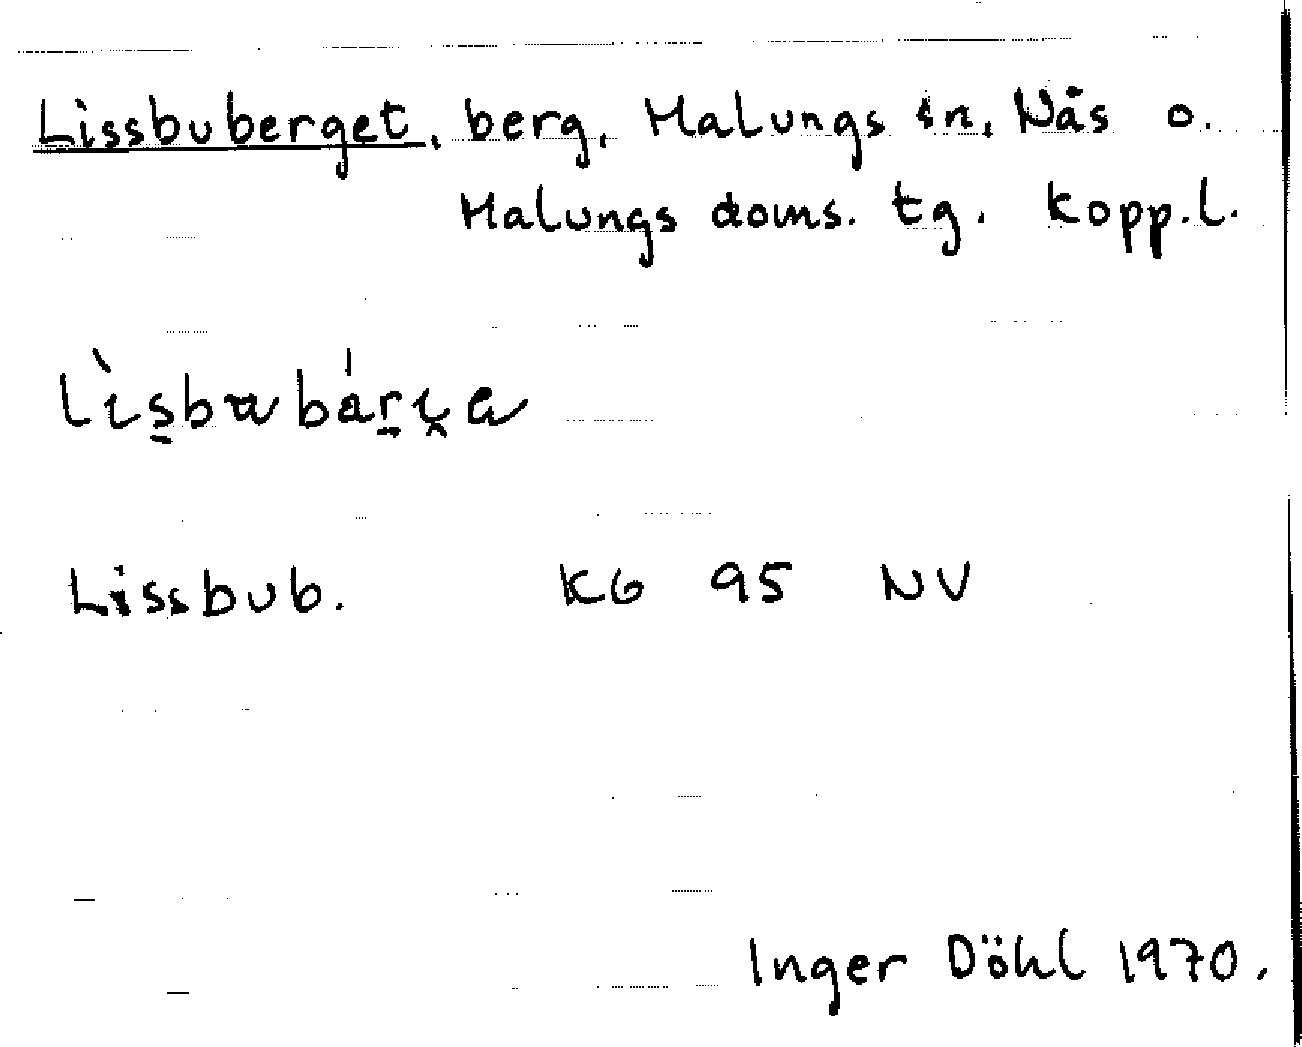 Lissbuberget, berg, Malungs sn, Nås o.
Malungs doms. tg. Kopp.l.
Lissbub. KG 95 NV
Inger Döhl 1970.